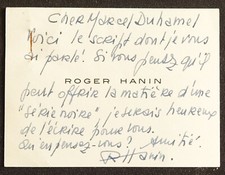 Cher Marcel Duhamel
Voici le script dont je vous
ai parlé. Si vous pensez qu'il
ROGER HANIN
peut offrir la matière d'une
"série noire", je serais heureux
de l'écrire pour vous.
Qu'en pensez-vous? Amitié.
R Hanin.